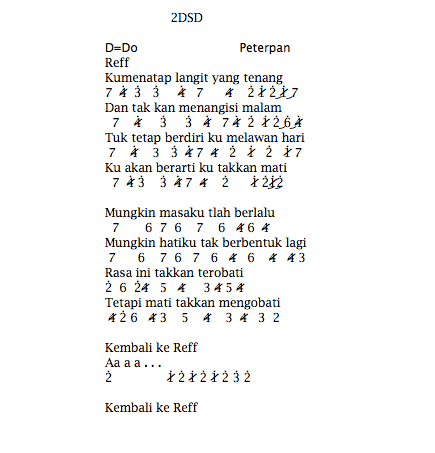 2DSD
D=Do Peterpan
Reff
Kumenatap langit yang tenang
7 4̸̇ 3̇ 3̇ 4̸̇ 7 4̸ 2̇ 1̸̇ 2̇ 1̸̇ 7
Dan tak kan menangisi malam
7 4̸̇ 3̇ 3̇ 4̸̇ 7 4̸ 2̇ 1̸̇ 2̇ 6 4̸
Tuk tetap berdiri ku melawan hari
7 4̸̇ 3̇ 3̇ 4̸̇ 7 4̸ 2̇ 1̸̇ 2̇ 1̸̇ 7
Ku akan berarti ku takkan mati
7 4̸̇ 3̇ 3̇ 4̸̇ 7 4̸ 2̇ 1̸̇ 2̇ 1̸̇ 2̇
Mungkin masaku tlah berlalu
7 6 7 6 7 6 4̸ 6 4̸
Mungkin hatiku tak berbentuk lagi
7 6 7 6 7 6 4̸ 6 4̸ 4̸ 3
Rasa ini takkan terobati
2̇ 6 2̇ 4̸ 5 4̸ 3 4̸ 5 4̸
Tetapi mati takkan mengobati
4̸ 2̇ 6 4̸ 3 5 4̸ 3 4̸ 3 2
Kembali ke Reff
Aa a a . . .
2̇ 1̸̇ 2̇ 1̸̇ 2̇ 1̸̇ 2̇ 3̇ 2̇
Kembali ke Reff